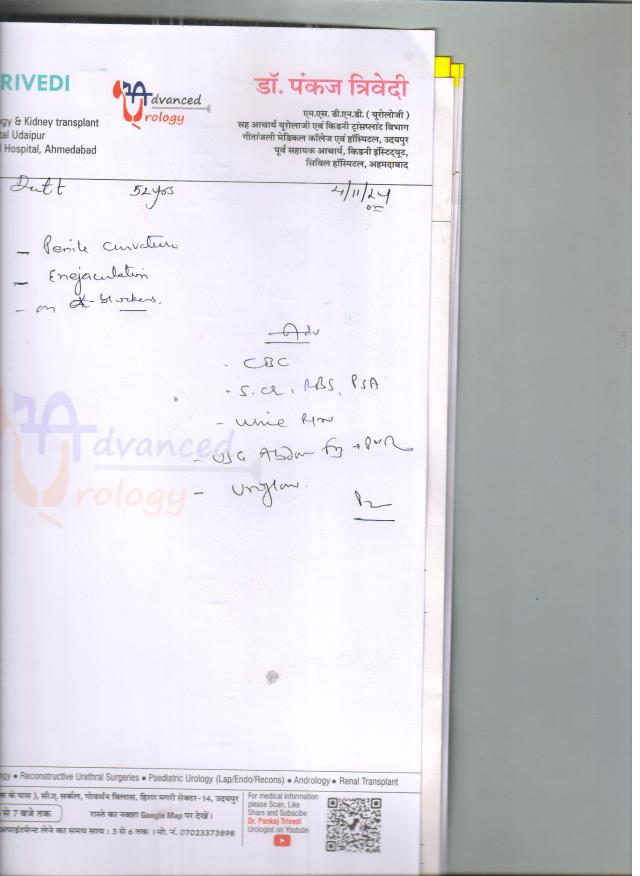 RIVEDI
Advanced
Urology
gy & Kidney transplant
al Udaipur
Hospital, Ahmedabad
डॉ. पंकज त्रिवेदी
एम.एस. डी.एन.बी. ( यूरोलोजी )
सह आचार्य यूरोलाजी एवं किडनी ट्रांसप्लांट विभाग
गीतांजली मेडिकल कॉलेज एवं हॉस्पिटल, उदयपुर
पूर्व सहायक आचार्य, किडनी इंस्टिट्यूट,
सिविल हॉस्पिटल, अहमदाबाद
Dutt 52yrs 4/11/24
- Penile curvature
- Enejaculation
- on α-blockers.
Adv
- CBC
- S.Cr, RBS, PSA
- Urine
- USG Abdo + PVR
-
Advanced
Urology
gy • Reconstructive Urethral Surgeries • Paediatric Urology (Lap/Endo/Recons) • Andrology • Renal Transplant
स के पास ), सी.ए. सर्कल, गोवर्धन विलास, हिरण मगरी सेक्टर-14, उदयपुर
से 7 बजे तक रास्ते का नक्शा Google Map पर देखें।
अपाइंटमेन्ट लेने का समय सायं : 3 से 6 तक । मो. नं. 07023373898
For medical information
please Scan, Like
Share and Subscibe
Dr. Pankaj Trivedi
Urologist on Youtube